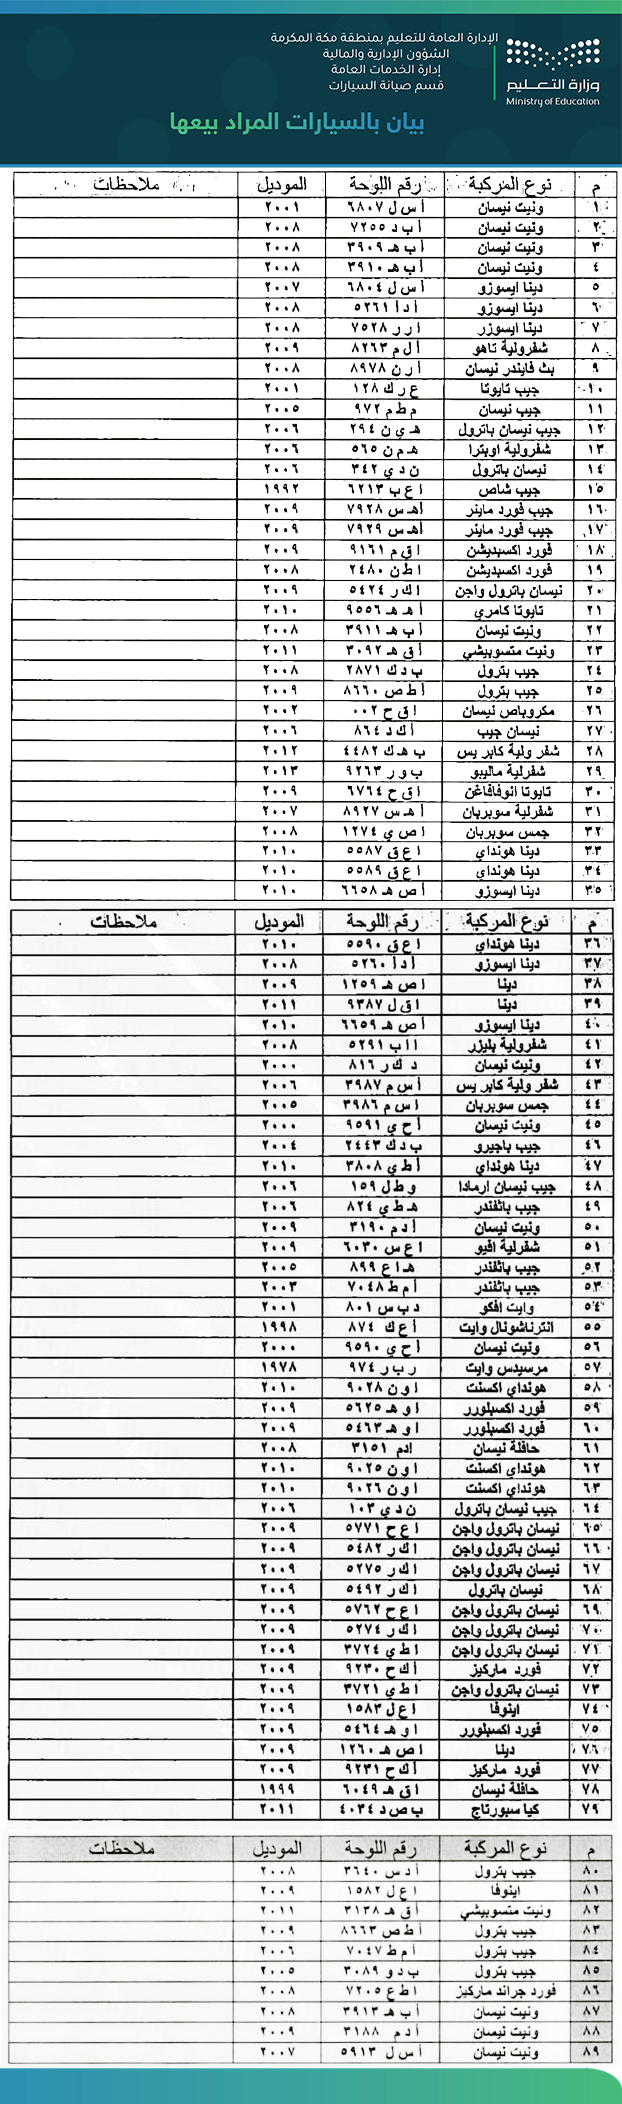 الإدارة العامة للتعليم بمنطقة مكة المكرمة
الشؤون الإدارية والمالية
إدارة الخدمات العامة
قسم صيانة السيارات
وزارة التعليم
Ministry of Education
بيان بالسيارات المراد بيعها
م نوع المركبة رقم اللوحة الموديل ملاحظات
١ ونيت نيسان أ س ل ٦٨٠٧ ٢٠٠١
٢ ونيت نيسان أ ب د ٧٢٥٥ ٢٠٠٨
٣ ونيت نيسان أ ب هـ ٣٩٠٩ ٢٠٠٨
٤ ونيت نيسان أ ب هـ ٣٩١٠ ٢٠٠٨
٥ دينا ايسوزو أ س ل ٦٨٠٤ ٢٠٠٧
٦ دينا ايسوزو أ د أ ٥٢٦١ ٢٠٠٨
٧ دينا ايسوزر ا ر ر ٧٥٢٨ ٢٠٠٨
٨ شفرولية تاهو أ ل م ٨٢٦٣ ٢٠٠٩
٩ بث فايندر نيسان أ ر ن ٨٩٧٨ ٢٠٠٨
١٠ جيب تايوتا ع ر ك ١٢٨ ٢٠٠١
١١ جيب نيسان م ط م ٩٧٢ ٢٠٠٥
١٢ جيب نيسان باترول هـ ي ن ٢٩٤ ٢٠٠٦
١٣ شفرولية اوبترا هـ م ن ٥٦٥ ٢٠٠٦
١٤ نيسان باترول ن د ي ٣٤٢ ٢٠٠٦
١٥ جيب شاص ا ع ب ٦٢١٣ ١٩٩٢
١٦ جيب فورد ماينر أ هـ س ٧٩٢٨ ٢٠٠٩
١٧ جيب فورد ماينر أ هـ س ٧٩٢٩ ٢٠٠٩
١٨ فورد اكسبديشن ا ق م ٩١٦١ ٢٠٠٩
١٩ فورد اكسبديشن ا ط ن ٢٤٨٠ ٢٠٠٨
٢٠ نيسان باترول واجن ا ك ر ٥٤٢٤ ٢٠٠٩
٢١ تايوتا كامري أ هـ هـ ٩٥٥٦ ٢٠١٠
٢٢ ونيت نيسان أ ب هـ ٣٩١١ ٢٠٠٨
٢٣ ونيت متسوبيشي أ ق هـ ٣٠٩٢ ٢٠١١
٢٤ جيب بترول ب د ك ٢٨٧١ ٢٠٠٨
٢٥ جيب بترول أ ط ص ٨٦٦٠ ٢٠٠٩
٢٦ مكروباص نيسان ا ق ح ٠٠٢ ٢٠٠٢
٢٧ نيسان جيب أ ك د ٨٦٤ ٢٠٠٦
٢٨ شفر ولية كابر يس ب هـ ك ٤٤٨٢ ٢٠١٢
٢٩ شفرلية ماليبو ب و ر ٩٢٦٣ ٢٠١٣
٣٠ تايوتا انوفافاغن ا ق ح ٦٧٦٤ ٢٠٠٩
٣١ شفرلية سوبربان أ هـ س ٨٩٢٧ ٢٠٠٧
٣٢ جمس سوبربان ا ص ي ١٢٧٤ ٢٠٠٨
٣٣ دينا هونداي ا ع ق ٥٥٨٧ ٢٠١٠
٣٤ دينا هونداي ا ع ق ٥٥٨٩ ٢٠١٠
٣٥ دينا ايسوزو أ ص هـ ٦٦٥٨ ٢٠١٠
م نوع المركبة رقم اللوحة الموديل ملاحظات
٣٦ دينا هونداي ا ع ق ٥٥٩٠ ٢٠١٠
٣٧ دينا ايسوزو أ د أ ٥٢٦٠ ٢٠٠٨
٣٨ دينا ا ص هـ ١٢٥٩ ٢٠٠٩
٣٩ دينا ا ق ل ٩٣٨٧ ٢٠١١
٤٠ دينا ايسوزو أ ص هـ ٦٦٥٩ ٢٠١٠
٤١ شفرولية بليزر ا ا ب ٥٢٩١ ٢٠٠٨
٤٢ ونيت نيسان د ك ر ٨١٦ ٢٠٠٠
٤٣ شفر ولية كابر يس أ س م ٣٩٨٧ ٢٠٠٦
٤٤ جمس سوبربان ا س م ٣٩٨٦ ٢٠٠٥
٤٥ ونيت نيسان أ ح ي ٩٥٩١ ٢٠٠٠
٤٦ جيب باجيرو ب د ك ٢٤٤٣ ٢٠٠٤
٤٧ دينا هونداي أ ط ي ٣٨٠٨ ٢٠١٠
٤٨ جيب نيسان ارمادا و ط ل ١٥٩ ٢٠٠٦
٤٩ جيب باثفندر هـ ط ي ٨٢٤ ٢٠٠٦
٥٠ ونيت نيسان أ د م ٣١٩٠ ٢٠٠٩
٥١ شفرلية افيو ا ع س ٦٠٣٠ ٢٠٠٩
٥٢ جيب باثفندر هـ ا ع ٨٩٩ ٢٠٠٥
٥٣ جيب باثفندر أ م ط ٧٠٤٨ ٢٠٠٣
٥٤ وايت افكو د ب س ٨٠١ ٢٠٠١
٥٥ انترناشونال وايت أ ع ك ٨٧٤ ١٩٩٨
٥٦ ونيت نيسان أ ح ي ٩٥٩٠ ٢٠٠٠
٥٧ مرسيدس وايت ر ب ر ٩٧٤ ١٩٧٨
٥٨ هونداي اكسنت ا و ن ٩٠٢٨ ٢٠١٠
٥٩ فورد اكسبلورر ا و هـ ٥٦٢٥ ٢٠٠٩
٦٠ فورد اكسبلورر ا و هـ ٥٤٦٣ ٢٠٠٩
٦١ حافلة نيسان ادم ٣١٥١ ٢٠٠٨
٦٢ هونداي اكسنت ا و ن ٩٠٢٥ ٢٠١٠
٦٣ هونداي اكسنت ا و ن ٩٠٢٦ ٢٠١٠
٦٤ جيب نيسان باترول ن د ي ١٠٣ ٢٠٠٦
٦٥ نيسان باترول واجن ا ع ح ٥٧٧١ ٢٠٠٩
٦٦ نيسان باترول واجن ا ك ر ٥٤٨٢ ٢٠٠٩
٦٧ نيسان باترول واجن ا ك ر ٥٢٧٥ ٢٠٠٩
٦٨ نيسان باترول ا ك ر ٥٤٩٢ ٢٠٠٩
٦٩ نيسان باترول واجن ا ع ح ٥٧٦٢ ٢٠٠٩
٧٠ نيسان باترول واجن ا ك ر ٥٢٧٤ ٢٠٠٩
٧١ نيسان باترول واجن ا ط ي ٣٧٢٤ ٢٠٠٩
٧٢ فورد ماركيز أ ك ح ٩٢٣٠ ٢٠٠٩
٧٣ نيسان باترول واجن ا ط ي ٣٧٢١ ٢٠٠٩
٧٤ اينوفا ا ع ل ١٥٨٣ ٢٠٠٩
٧٥ فورد اكسبلورر ا و هـ ٥٤٦٤ ٢٠٠٩
٧٦ دينا ا ص هـ ١٢٦٠ ٢٠٠٩
٧٧ فورد ماركيز أ ك ح ٩٢٣١ ٢٠٠٩
٧٨ حافلة نيسان ا ق هـ ٦٠٤٩ ١٩٩٩
٧٩ كيا سبورتاج ب ص د ٤٠٣٤ ٢٠١١
م نوع المركبة رقم اللوحة الموديل ملاحظات
٨٠ جيب بترول أ د س ٣٦٤٠ ٢٠٠٨
٨١ اينوفا ا ع ل ١٥٨٢ ٢٠٠٩
٨٢ ونيت متسوبيشي أ ق هـ ٣١٣٨ ٢٠١١
٨٣ جيب بترول أ ط ص ٨٦٦٣ ٢٠٠٩
٨٤ جيب بترول أ م ط ٧٠٤٧ ٢٠٠٦
٨٥ جيب بترول ب د و ٣٠٨٩ ٢٠٠٥
٨٦ فورد جراند ماركيز ا ط ع ٧٢٠٥ ٢٠٠٨
٨٧ ونيت نيسان أ ب هـ ٣٩١٣ ٢٠٠٨
٨٨ ونيت نيسان أ د م ٣١٨٨ ٢٠٠٩
٨٩ ونيت نيسان أ س ل ٥٩١٣ ٢٠٠٧